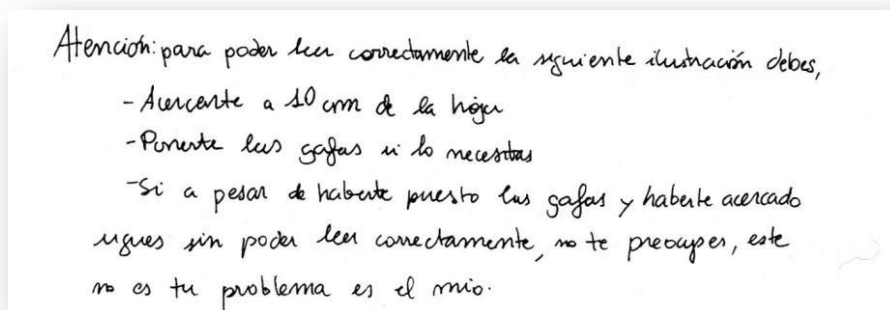 Atención: para poder leer correctamente la siguiente ilustración debes,
- Acercarte a 10 cm de la hoja
- Ponerte las gafas si lo necesitas
- Si a pesar de haberte puesto las gafas y haberte acercado
sigues sin poder leer correctamente, no te preocupes, este
no es tu problema es el mio.